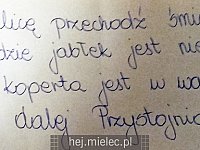 licę przechodź śmi
dzie jabłek jest nie
koperta jest w wa
dalej Przystojnia
hej.mielec.pl